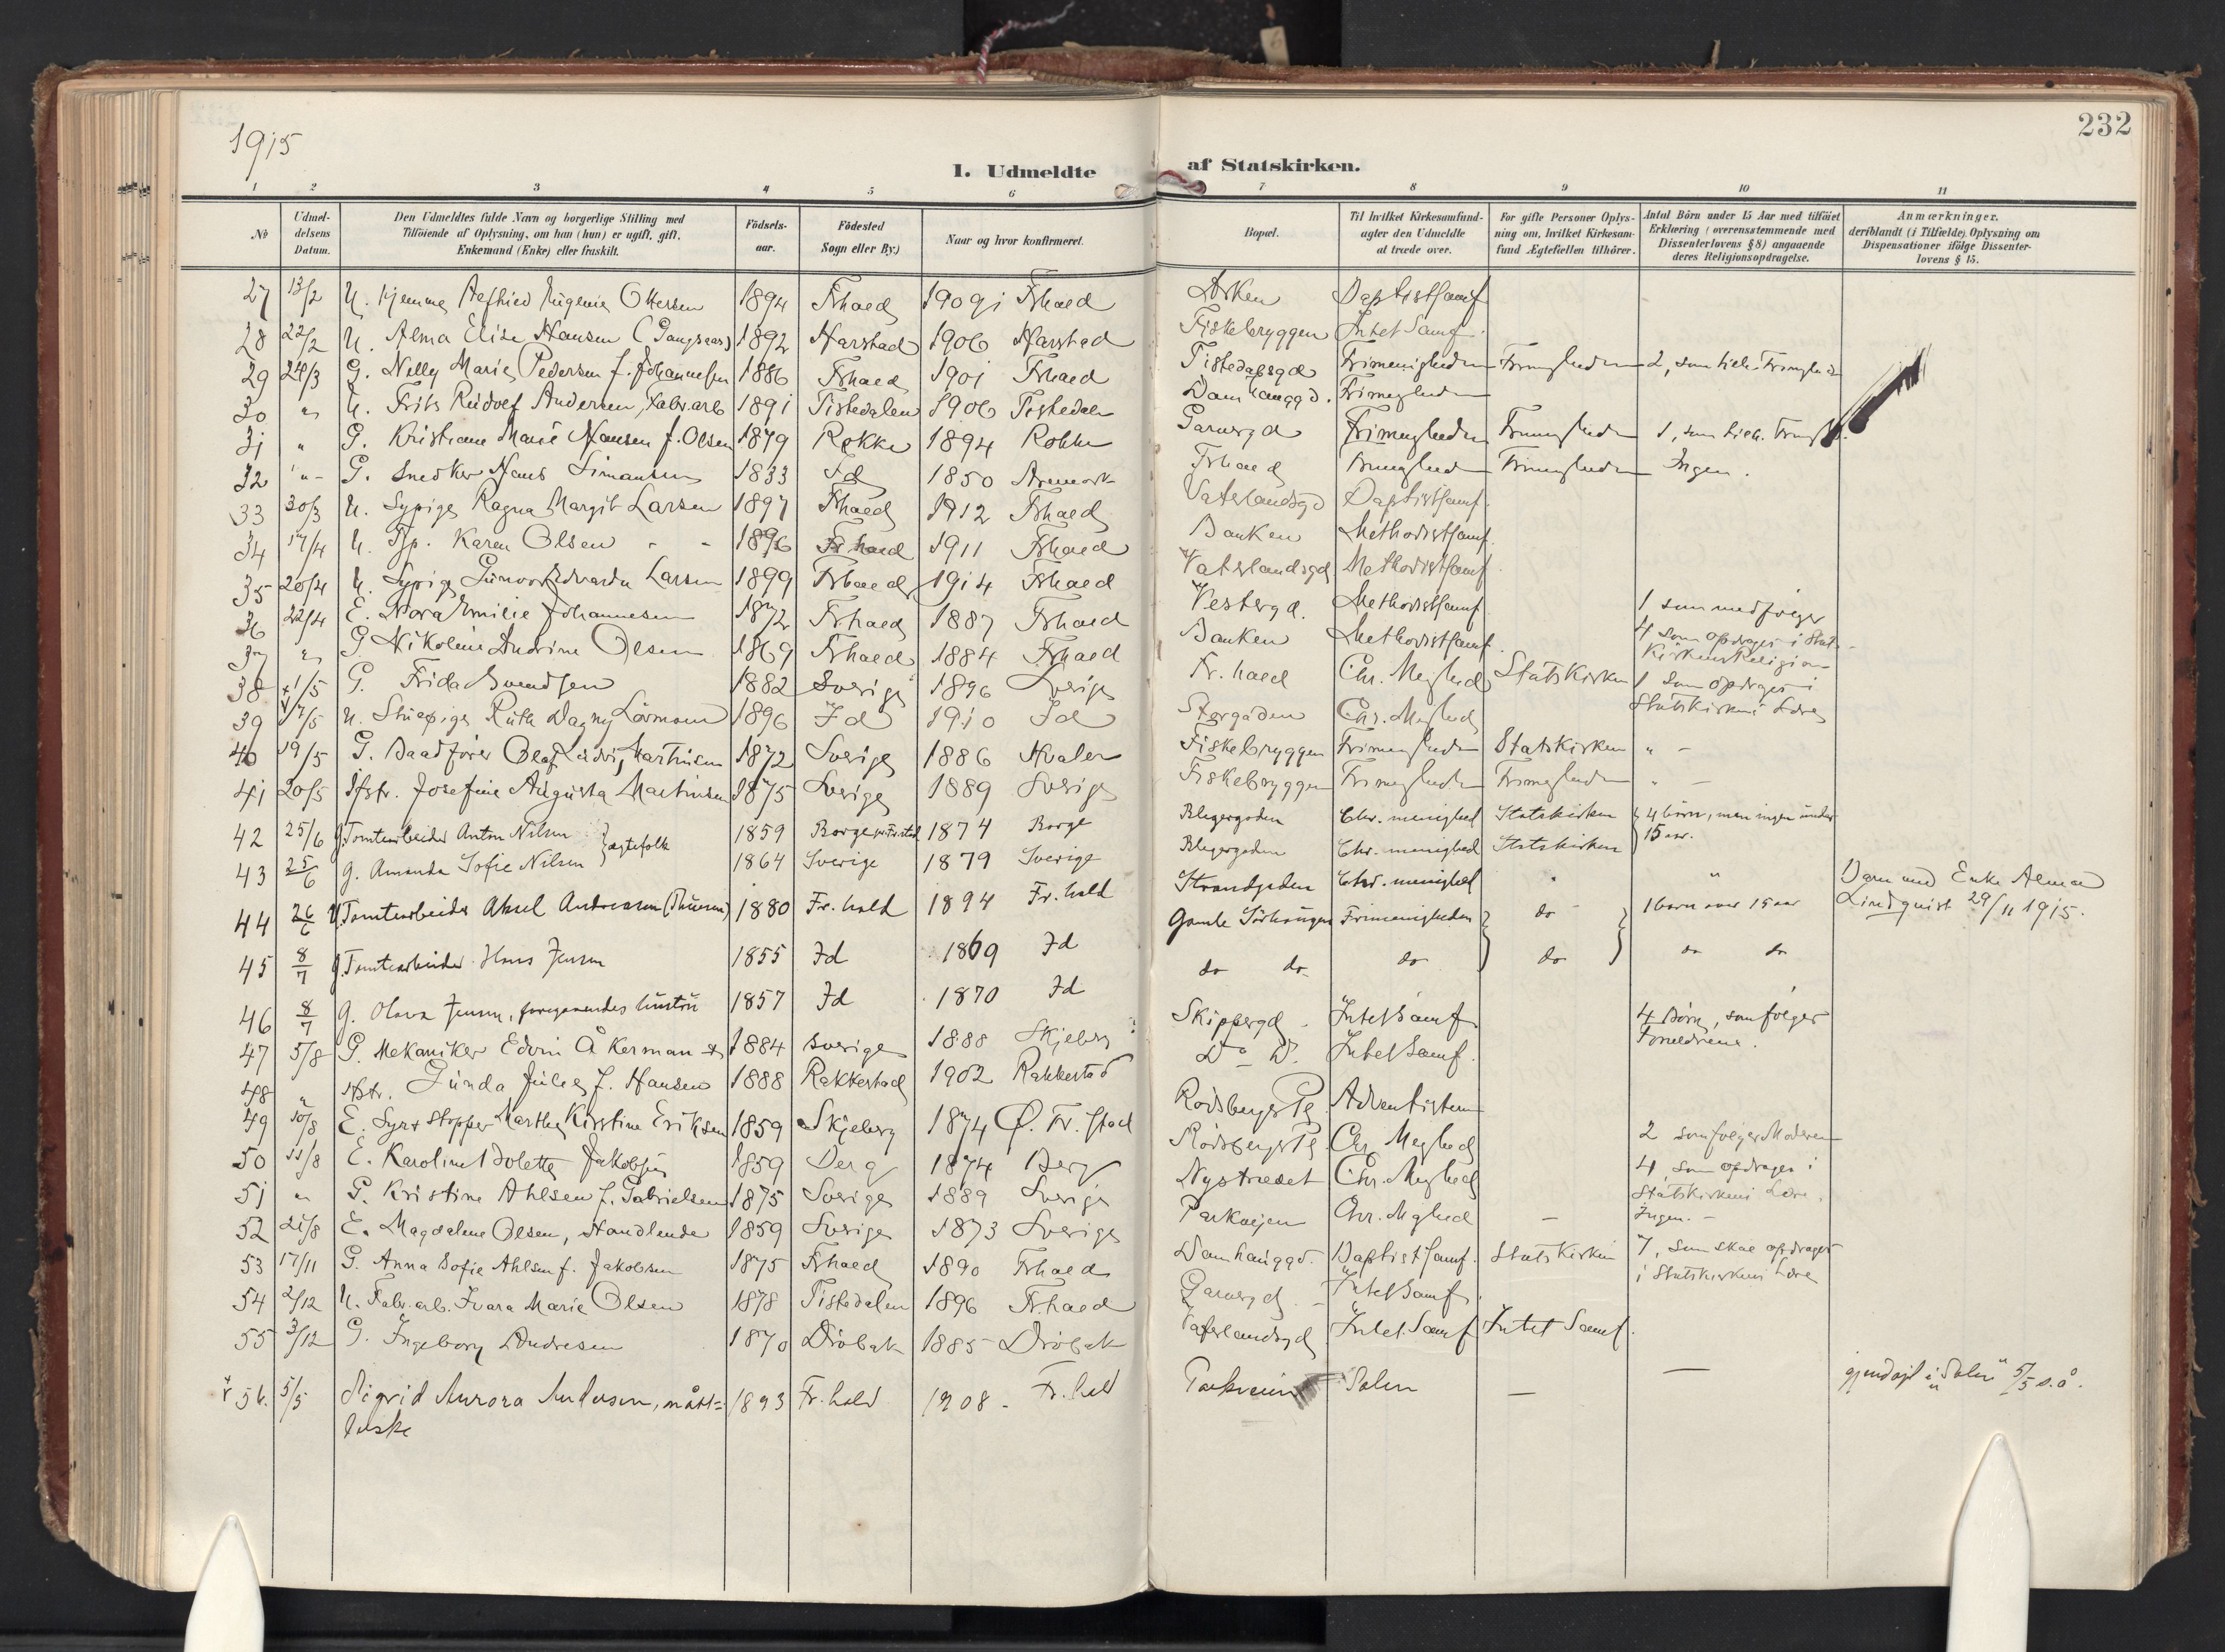 232
1915
1. Udmeldte af Statskirken.
1 2 3 4 5 6 7 8 9 10 11
No
Udmeldelsens Datum.
Den Udmeldtes fulde Navn og borgerlige Stilling med Tilföiende af Oplysning, om han (hun) er ugift, gift, Enkemand (Enke) eller fraskilt.
Födselsaar.
Födested Sogn eller By.)
Naar og hvor konfirmeret.
Bopæl.
Til hvilket Kirkesamfund agter den Udmeldte at træde over.
For gifte Personer Oplysning om, hvilket Kirkesamfund Ægtefællen tilhörer.
Antal Börn under 15 Aar med tilföiet Erklæring (overensstemmende med Dissenterlovens § 8) angaaende deres Religionsopdragelse.
Anmærkninger, deriblandt (i Tilfælde) Oplysning om Dispensationer ifölge Dissenterlovens § 15.
27 13/2 U. Hjemme Eugenie Ottersen 1894 Frhald 1909 Frhald Baptistsamf
28 22/2 U. Alma Elise Hansen 1892 Harstad 1906 Harstad Fiskebryggen Intet Samf.
29 24/3 G. Nelly Marie Pedersen f. Johannesen 1886 Frhald 1901 Frhald Tistedalsgd Frimenigheden Frimgheden 2, som
30 " U. Frits Rudolf Andersen, Fabr.arb 1891 Tistedalen 1906 Tistedalen Damhauggd. Frimegheden
31 " G. Kristiane Marie Hansen f. Olsen 1879 Rokke 1894 Rokke Garvergd Frimegheden Frimegheden 1, som
32 " - G. Snedker Hans Simansen 1833 Id 1850 Aremark Frhald Frimeghed Frimegheden Ingen.
33 30/3 U. Sypige Ragna Margit Larsen 1897 Frhald 1912 Frhald Vaterlandsgd Baptistsamf.
34 17/4 U. Tjp. Karen Olsen - - 1896 Fr hald 1911 Frhald Banken Methodistsamf.
35 20/4 U. Sypige Gunvor Edvarda Larsen 1899 Frhald 1914 Frhald Vaterlandsgd Methodistsamf.
36 22/4 E. Nora Emilie Johannesen 1872 Frhald 1887 Frhald Vestergd. Methodistsamf. 1 som medfølger
37 " G. Nikoline Andrine Olsen 1869 Frhald 1884 Frhald Banken Methodistsamf. 4 som opdrages i Stats-
Kirkens Religion
38 1/5 G. Frida Svendsen 1882 Sverige 1896 Sverige Fr. hald Chr. Meghed Statskirken 1 som opdrages i
Statskirkens Lære
39 17/5 U. Stuepige Ruth Dagny 1896 Id 1910 Id Chr. Meghed
40 19/5 G. Baadfører Olaf Martinsen 1872 Sverige 1886 Hvaler Fiskebryggen Frimegheden Statskirken " -
41 20/5 Hstr. Josefine Augusta Martinsen 1875 Sverige 1889 Sverige Fiskebryggen Frimegheden Frimegheden " -
42 25/6 g. Tomtearbeider Anton Nilsen } ægtefolk 1859 Borge pr. Fr.stad 1874 Borge Blegergaden Chr. menighed Statskirken } 4 börn, men ingen under
15 aar.
43 25/6 g. Amanda Sofie Nilsen 1864 Sverige 1879 Sverige Blegergaden Chr. menighed Statskirken
44 26/6 U. Tomtearbeider Aksel Andreasen 1880 Fr. hald 1894 Fr. hald Strandgaden Chr. menighed " " Barn med Enke Alma
Lindquist 29/11 1915.
45 8/7 g. Tomtearbeider Hans Jensen 1855 Id 1869 Id Gamle Sørhaugen Frimenigheden } do } 1 barn over 15 aar
46 8/7 g. Olava Jensen, foregaaendes hustru 1857 Id 1870 Id do do do do do do
47 5/8 G. Mekaniker Edvin Åkerman 1884 Sverige 1888 Skjeberg Skippergd - Intet Samf. 4 Børn, som følger
Forældrene.
48 " Hstr. Gunda Julie f. Hansen 1888 Rakkestad 1902 Rakkestad Do Do. Intet Samf.
49 10/8 E. Martha Kirstine Eriksen 1859 Skjeberg 1874 Ø. Fr. stad Rødsbergs Pl Adventistern
50 11/8 E. Karoline Bolette Jakobsen 1859 Berg 1874 Berg Rødsbergs Pl Chr. Meghed 2 som følger Moderen
51 " G. Kristine Ahlsen f. Gabrielsen 1875 Sverige 1889 Sverige Nystrædet Chr. Meghed 4, som opdrages i
Statskirkens Lære.
52 21/8 E. Magdalene Olsen, Handlende 1859 Sverige 1873 Sverige Parkvejen Chr. Mghed - Ingen. -
53 17/11 G. Anna Sofie Ahlsen f. Jakobsen 1875 Frhald 1890 Frhald Damhauggd. Baptistsamf. Statskirken 7, som skal opdrages
i Statskirkens Lære
54 2/12 U. Fabr. arb. Ivara Marie Olsen 1878 Tistedalen 1896 Fr.hald Garvergd - Intet Samf.
55 3/12 G. Ingeborg Andresen 1870 Drøbak 1885 Drøbak Vaterlandsgd Intet Samf Intet Samf.
56. 5/5 Sigrid Aurora Andersen, 1893 Fr. hald 1908 - Fr. hald Parkveien Salen - - i "Salen" 5/5 s.å.